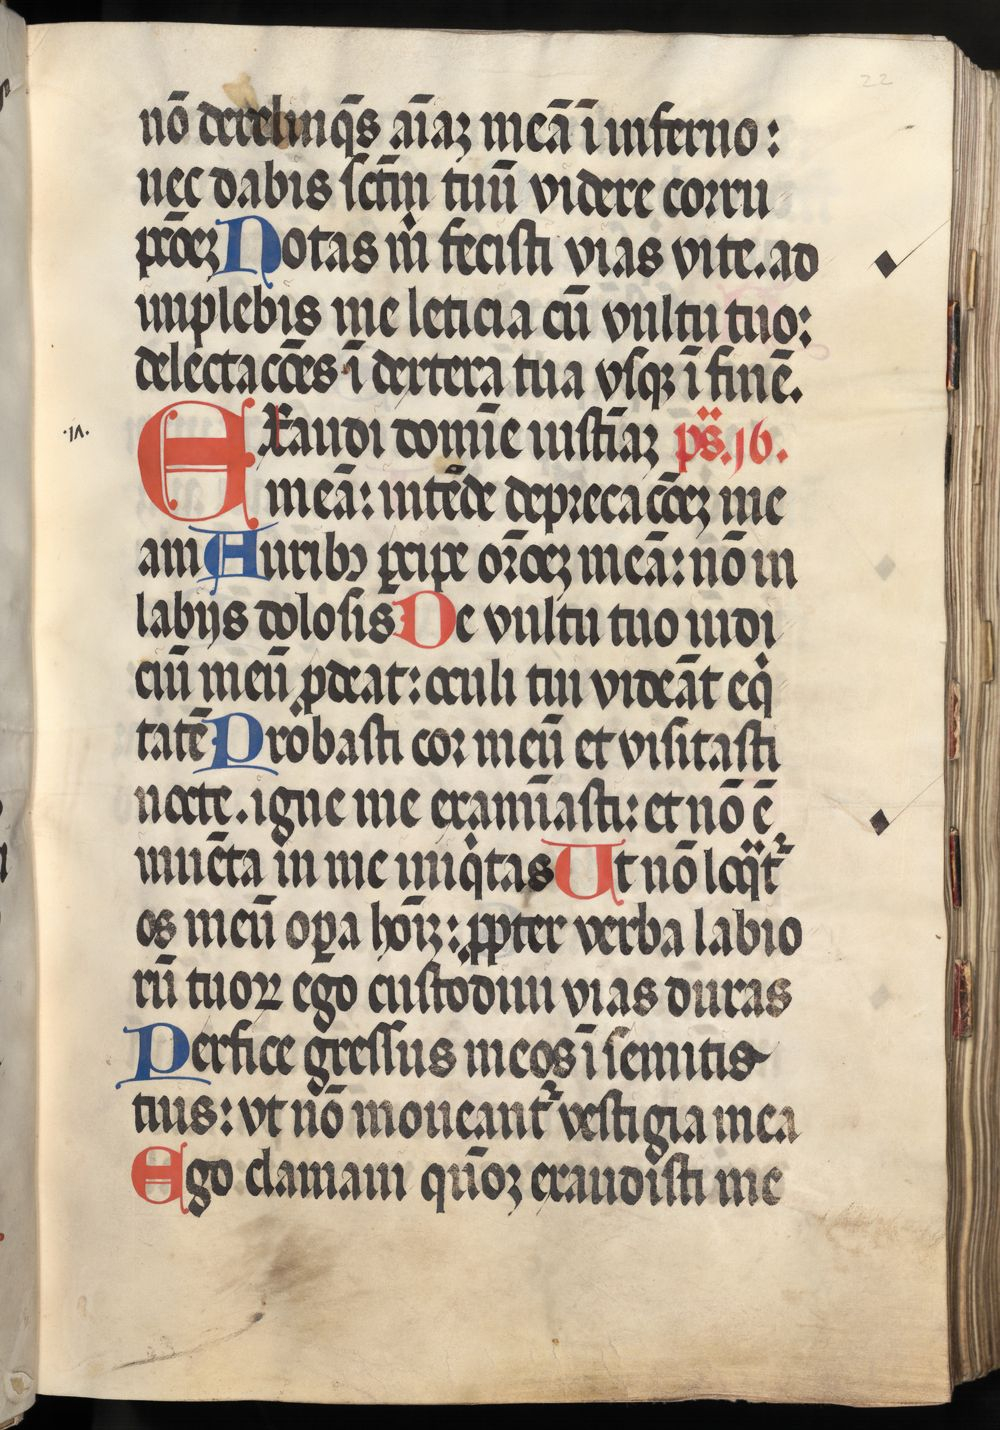 22
nō derelinq̄s aīaꝫ meā ī inferno:
nec dabis ſctm̄ tuū videre corru
pcōeꝫ Notas m̄ feciſti vias vite. ad
implebis me leticia cū vultu tuo:
delectaccōes ī dextera tua vſqꝫ ī finē.
Exaudi domīe iuſtīaꝫ pṡ. 16.
meā: intēde deprecaccōeꝫ me
am Auribꝰ ꝑcipe orōeꝫ meā: nō in
labijs dolosis De vultu tuo iudi
ciū meū ꝓdeat: oculi tui videāt eqͥ
tatē Probaſti cor meū et viſitaſti
nocte. igne me examīaſti: et nō ē
inuēta in me iniqͥtas Ut nō loq̄t᷑
os meū oꝑa hoīꝫ: ꝓpter verba labio
rū tuoꝝ ego cuſtodiui vias duras
Perfice greſſus meos ī ſemitis
tuis: vt nō moueant᷑ veſtigia mea
Ego clamaui qm̄oꝫ exaudiſti me